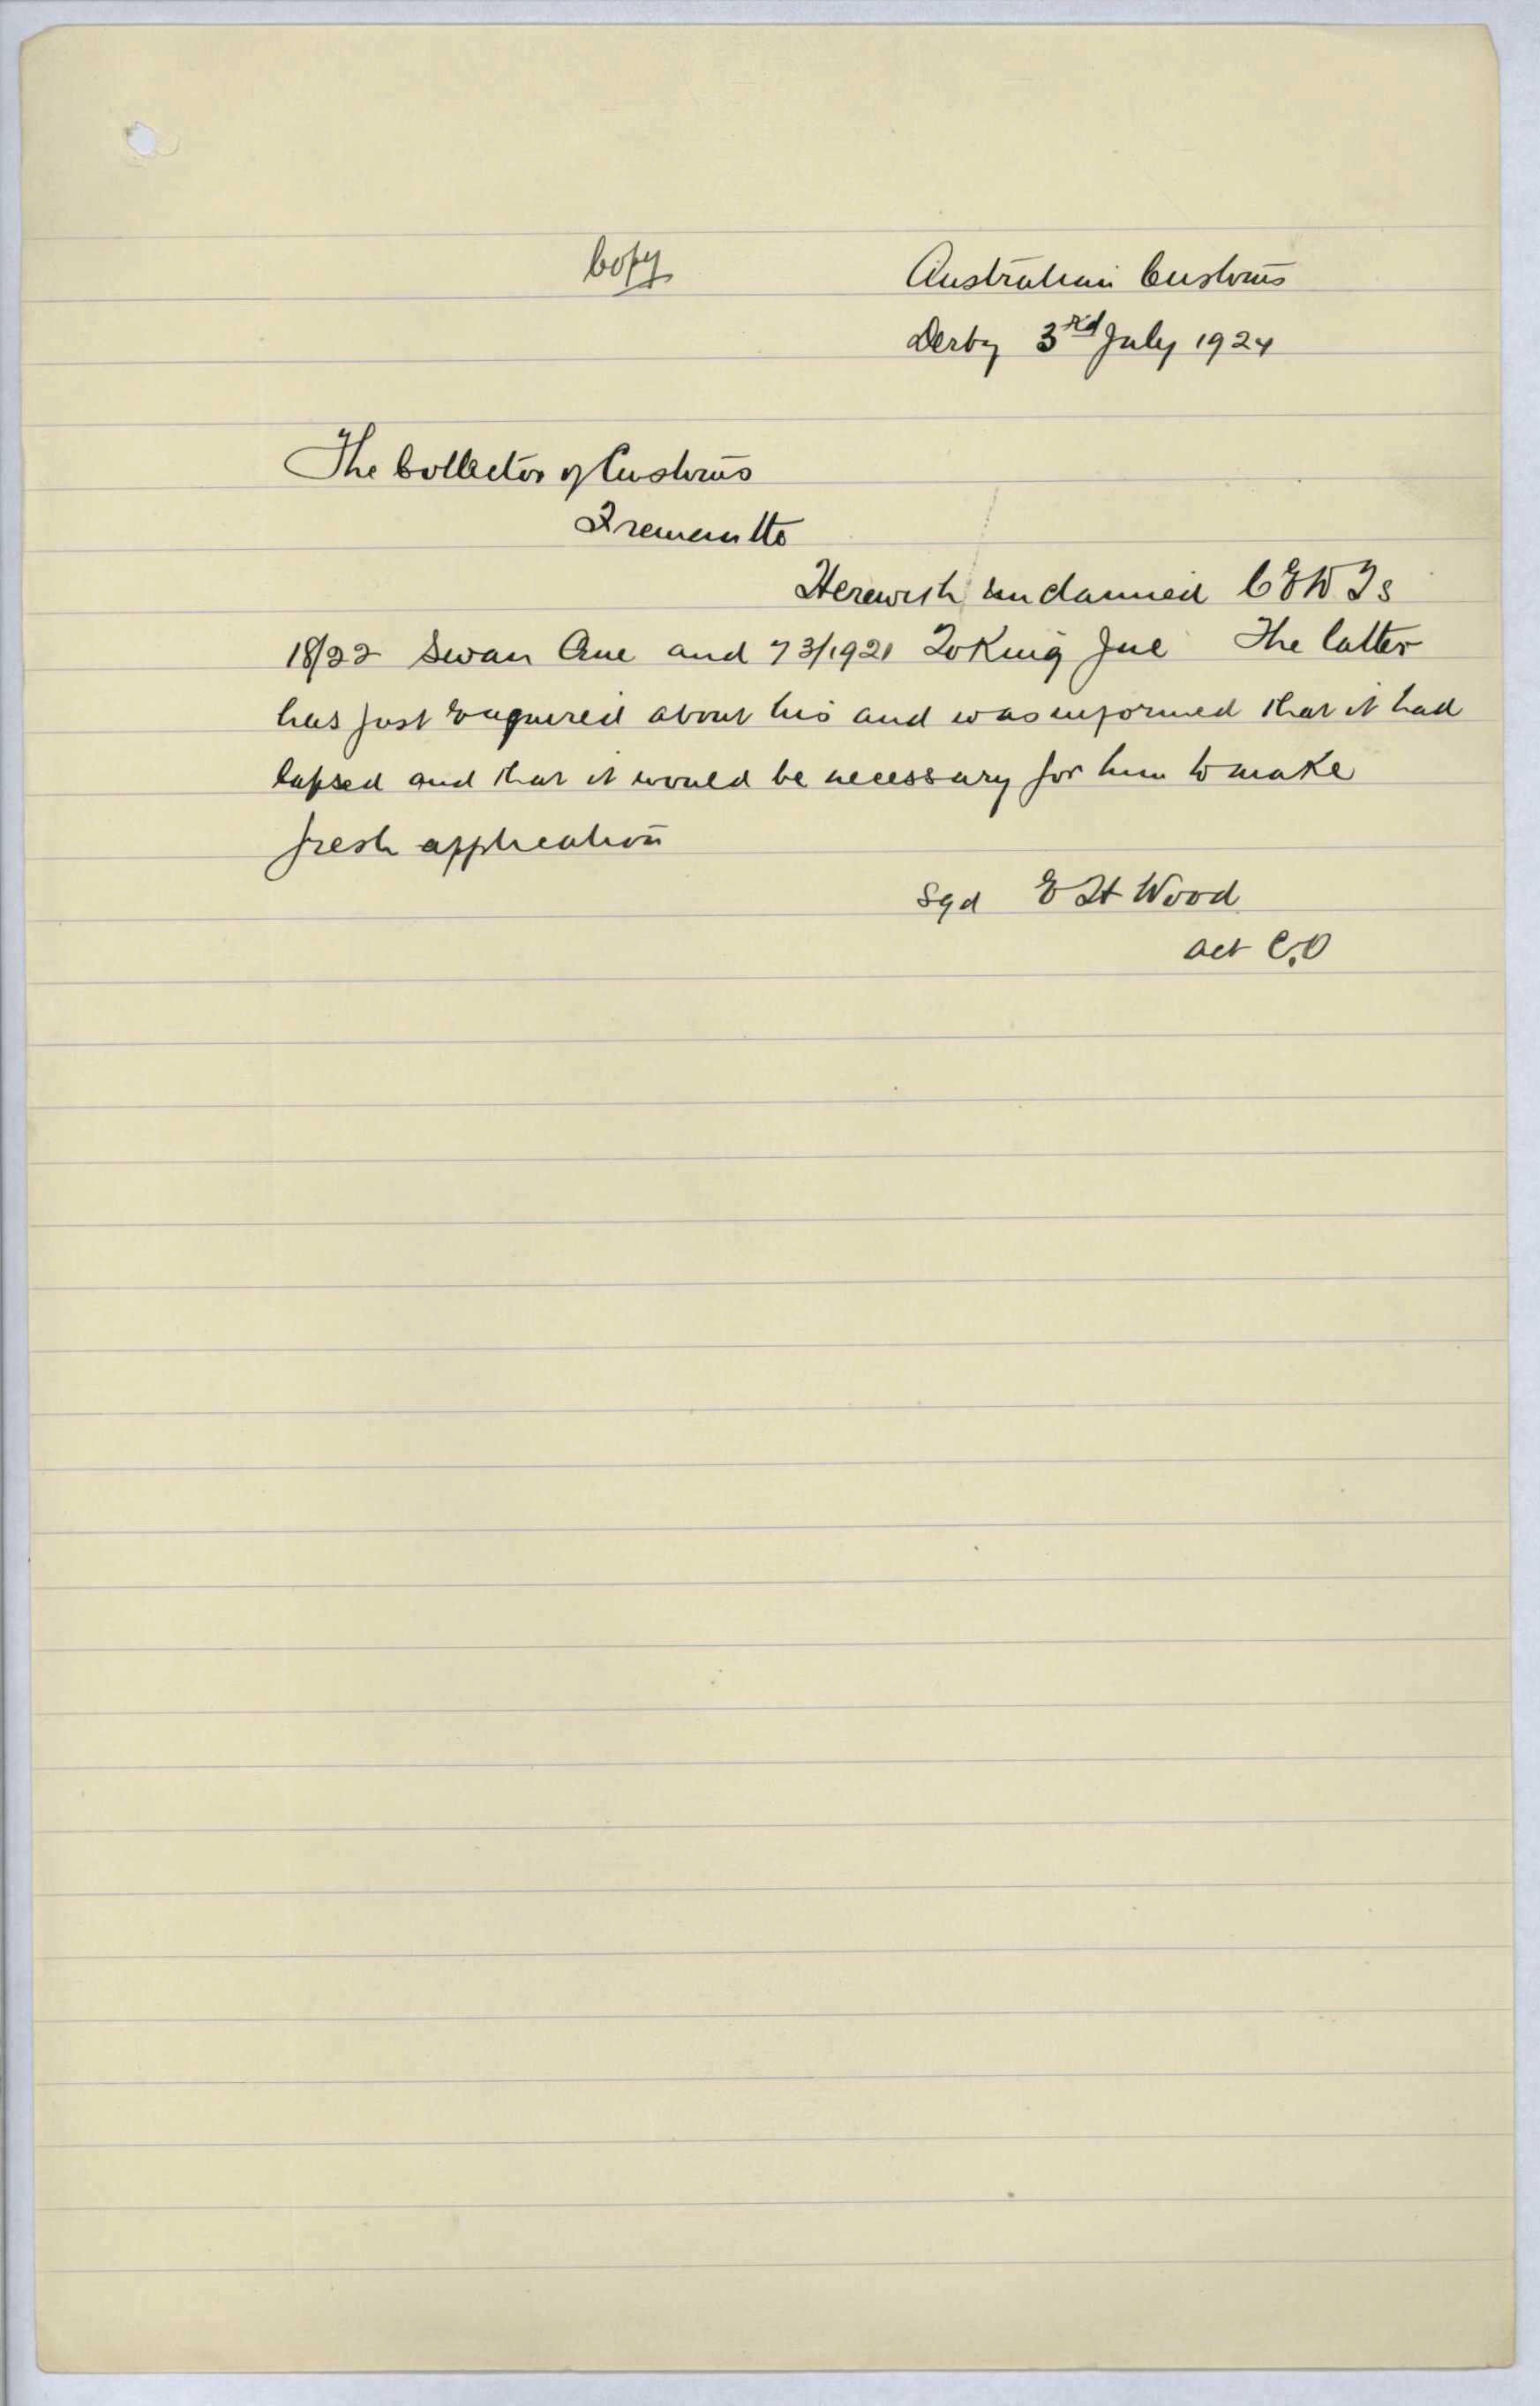 Copy
Australian Customs
Derby 3rd July 1924
The Collector of Customs
Fremantle
Herewith unclaimed CEDTs
18/22 Swan Que and 73/1921 Lo King Jue The latter
has just enquired about his and was informed that it had
lapsed and that it would be necessary for him to make
fresh application
Sgd E H Wood
Act C.O